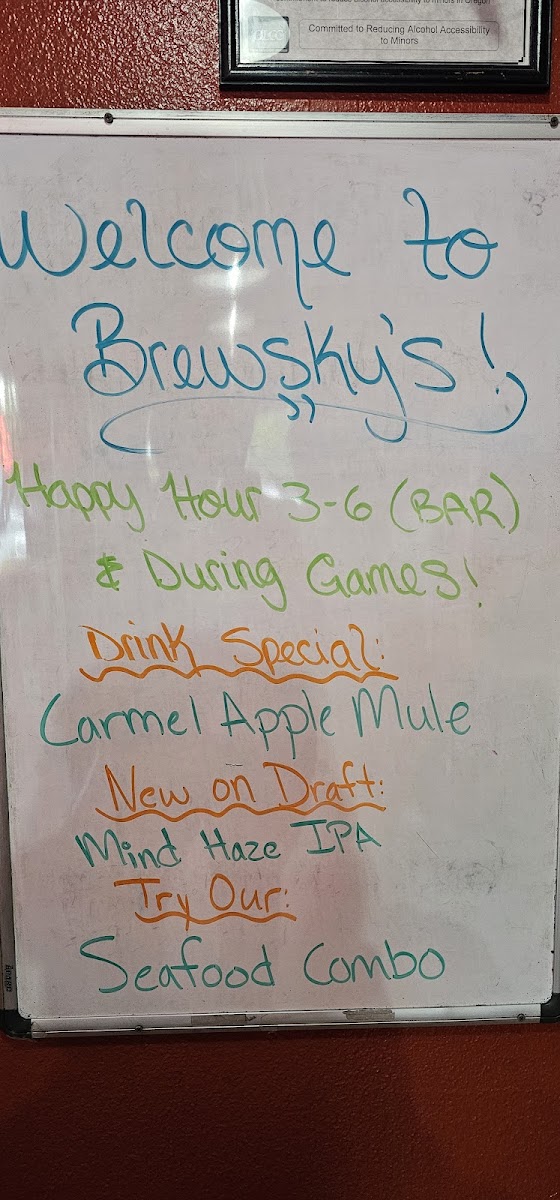 Committed to Reducing Alcohol Accessibility
to Minors
Welcome to
Brewsky's!
Happy Hour 3-6 (BAR)
& During Games!
Drink Special:
Carmel Apple Mule
New on Draft:
Mind Haze IPA
Try Our:
Seafood Combo